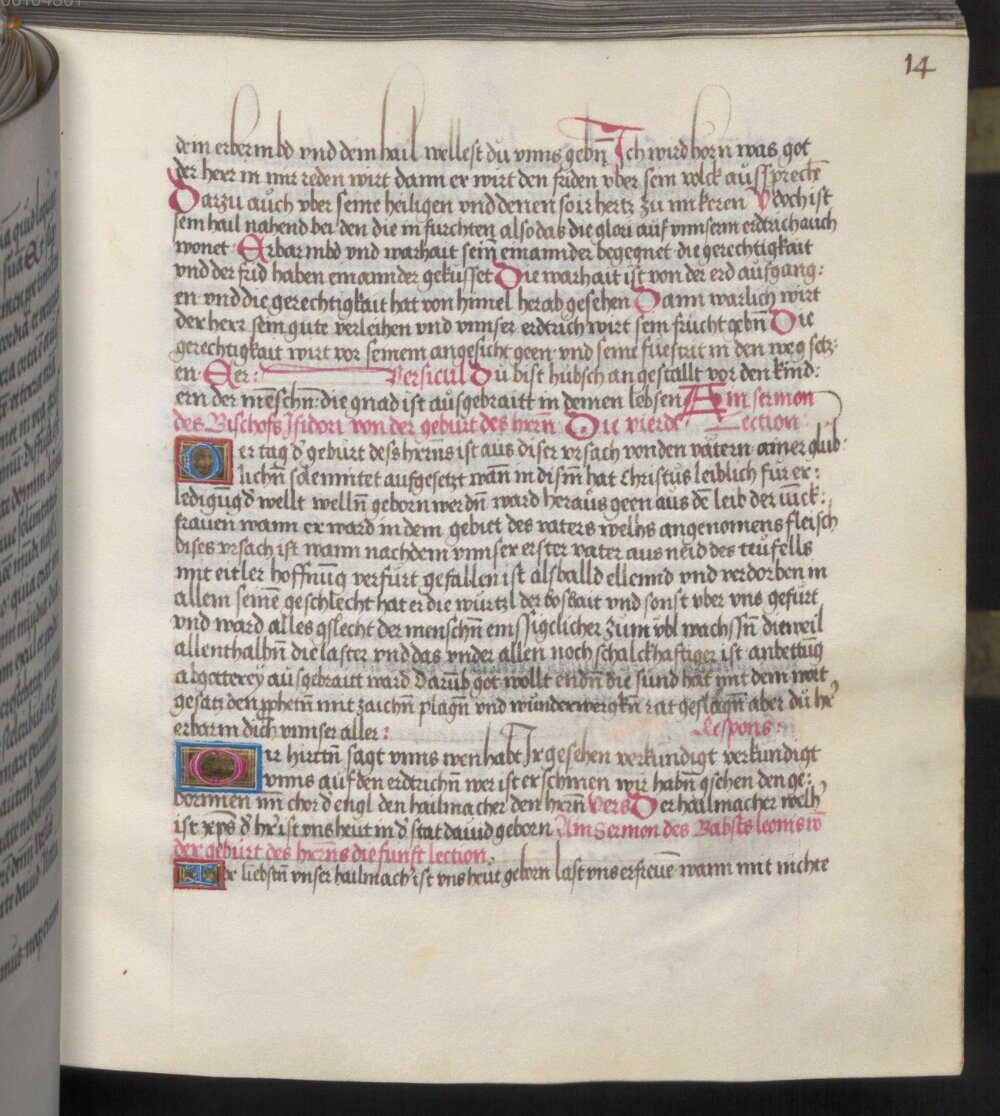 14
dem erbermbd vnd dem hail wellest du vnns gebñ Ich wird hörn was got
der herr in mir reden wirt dann er wirt den friden vber sein volck aussprechē
Darzu auch vber seine heiligen vnd denen so ir hertz zu im keren Ydoch ist
sein hail nahend bei den die in furchten also das die glori auf vnnserm erdrich auch
wonet Erbarmbd vnd warhait sein einannder begegnet die gerechtigkait
vnd der frid haben einannder gekusset Die warhait ist von der erd aufgang:
en vnd die gerechtigkait hat von himel herab gesehen Dann warlich wirt
der herr sein güte verleihen vnd vnnser erdtrich wirt sein frucht gebñ Die
gerechtigkait wirt vor seinem angesicht geen vnd seine fuestrit in den weg setz:
en Eer: Versicul Du bist hubsch angestallt vor den kind:
ern der mēschñ: die gnad ist ausgebraitt in deinen lebsen Ain sermon
des Bischofs Jsidori von der geburt des herrñ Die vierde Lection
Der tag d geburt dess herrns ist aus diser vrsach von den vätern ainer glub:
lichñ solemnitet aufgesetzt wañ in dism hat Christus leiblich für er:
ledigūg d wellt wellñ geborn werdñ ward heraus geen aus dē leib der iūck:
frauen wann er ward in dem gebiet des vaters welhs angenomens fleisch
dises vrsach ist wann nachdem vnnser erster vater aus neid des teufells
mit eitler hoffnūg verfurt gefallen ist alsballd ellennd vnd verdorben in
allem seinē geschlecht hat er die würtzl der boshait vnd sonst vber vns gefürt
vnd ward alles gslecht der menschñ emssigclicher zum vbl wachssñ dieweil
allenthalbñ die laster vnd das vnder allen noch schalckhaftiger ist anbettūg
abgotterey ausgebraitt ward Darūb got wollt endñ die sund hat mit dem wort
gesatz den pphetñ mit zaichñ plagñ vnd wunderwergkñ rat geslagñ aber du he
erbarm dich vnnser aller: Respons:
Ir hirttñ sagt vnns wen habt Jr gesehen verkundigt verkundigt
vnns auf den erdtrichñ wer ist erschinen wir habñ gsehen den ge:
bornnen im chor d engl den hailmacher den herrñ Vers Der hailmacher welh
ist xp̄s d her ist vns heut in d stat dauid geborn Ain Sermon des Babsts leonis vō
der geburt des herrns die funft lection.
Ir liebstñ vnser hailmach ist vns heut geborn last vns erfreuē wann mit nichte